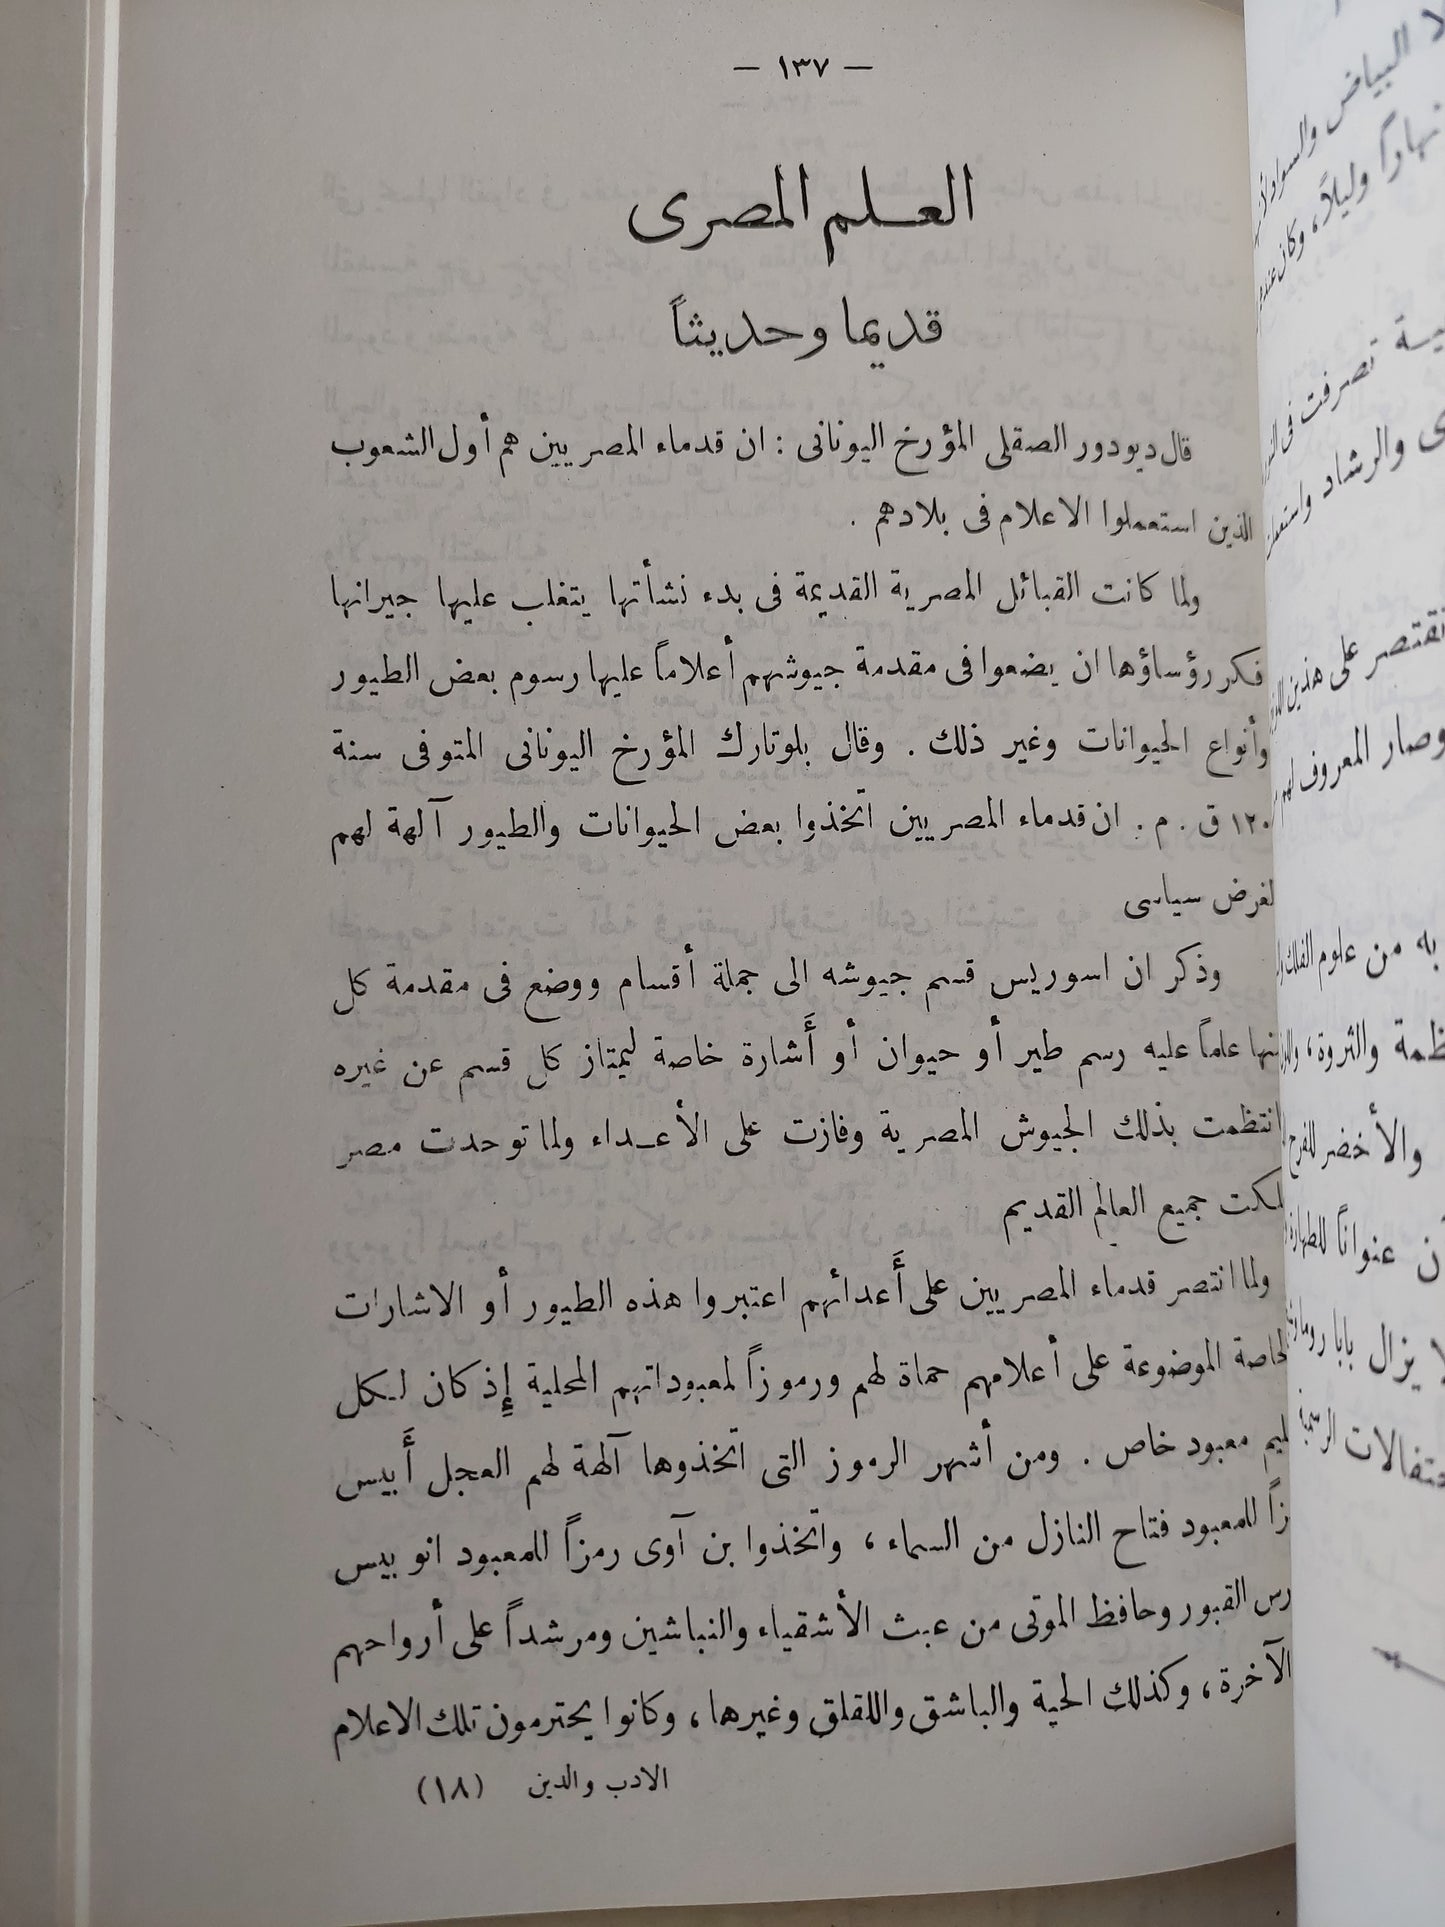 — ١٣٧ —
العلم المصرى
قديما وحديثاً
قال ديودور الصقلى المؤرخ اليونانى : ان قدماء المصريين هم أول الشعوب
الذين استعملوا الاعلام فى بلادهم .
ولما كانت القبائل المصرية القديمة فى بدء نشأتها يتغلب عليها جيرانها
فكر رؤساؤها ان يضعوا فى مقدمة جيوشهم أعلاماً عليها رسوم بعض الطيور
وأنواع الحيوانات وغير ذلك . وقال بلوتارك المؤرخ اليونانى المتوفى سنة
١٢٠ ق . م . ان قدماء المصريين اتخذوا بعض الحيوانات والطيور آلهة لهم
لغرض سياسى
وذكر ان اسوريس قسم جيوشه الى جملة أقسام ووضع فى مقدمة كل
منها علماً عليه رسم طير أو حيوان أو أَشارة خاصة ليمتاز كل قسم عن غيره
انتظمت بذلك الجيوش المصرية وفازت على الأعداء ولما توحدت مصر
ملكت جميع العالم القديم
ولما انتصر قدماء المصريين على أَعدائهم اعتبروا هذه الطيور أو الاشارات
لخاصة الموضوعة على أعلامهم حماة لهم ورموزاً لمعبوداتهم المحلية إِذ كان لكل
ليم معبود خاص . ومن أشهر الرموز التى اتخذوها آلهة لهم العجل أَبيس
زاً للمعبود فتاح النازل من السماء ، واتخذوا بن آوى رمزاً للمعبود انوبيس
رس القبور وحافظ الموتى من عبث الأشقياء والنباشين ومرشداً على أرواحهم
الآخرة ، وكذلك الحية والباشق واللقلق وغيرها ، وكانوا يحترمون تلك الاعلام
الادب والدين (١٨)
لا البياض والسواد
نهاراً وليلاً ، وكان
تصرفت فى
والرشاد
نقتصر على هذين
وصار المعروف لهم
به من علوم الفلك
ظمة والثروة ،
والأخضر للفرح
عنواناً للطهارة
لا يزال بابا روما
حتفالات الرسمية